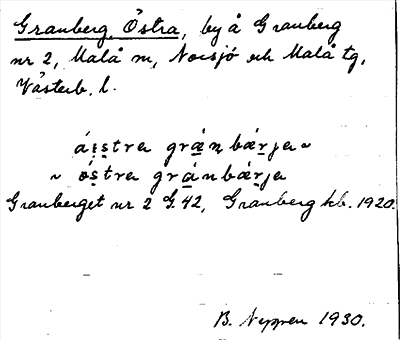 Granberg, Östra, by å Granberg
nr 2, Malå sn, Norsjö och Malå tg,
Västerb. l.
áı̣ṣtra grä́n̥bär̥ja ~
~ óṣtra gránbär̥ja
Granberget nr 2 G. 42, Granberg kb. 1920.
B. 1930.